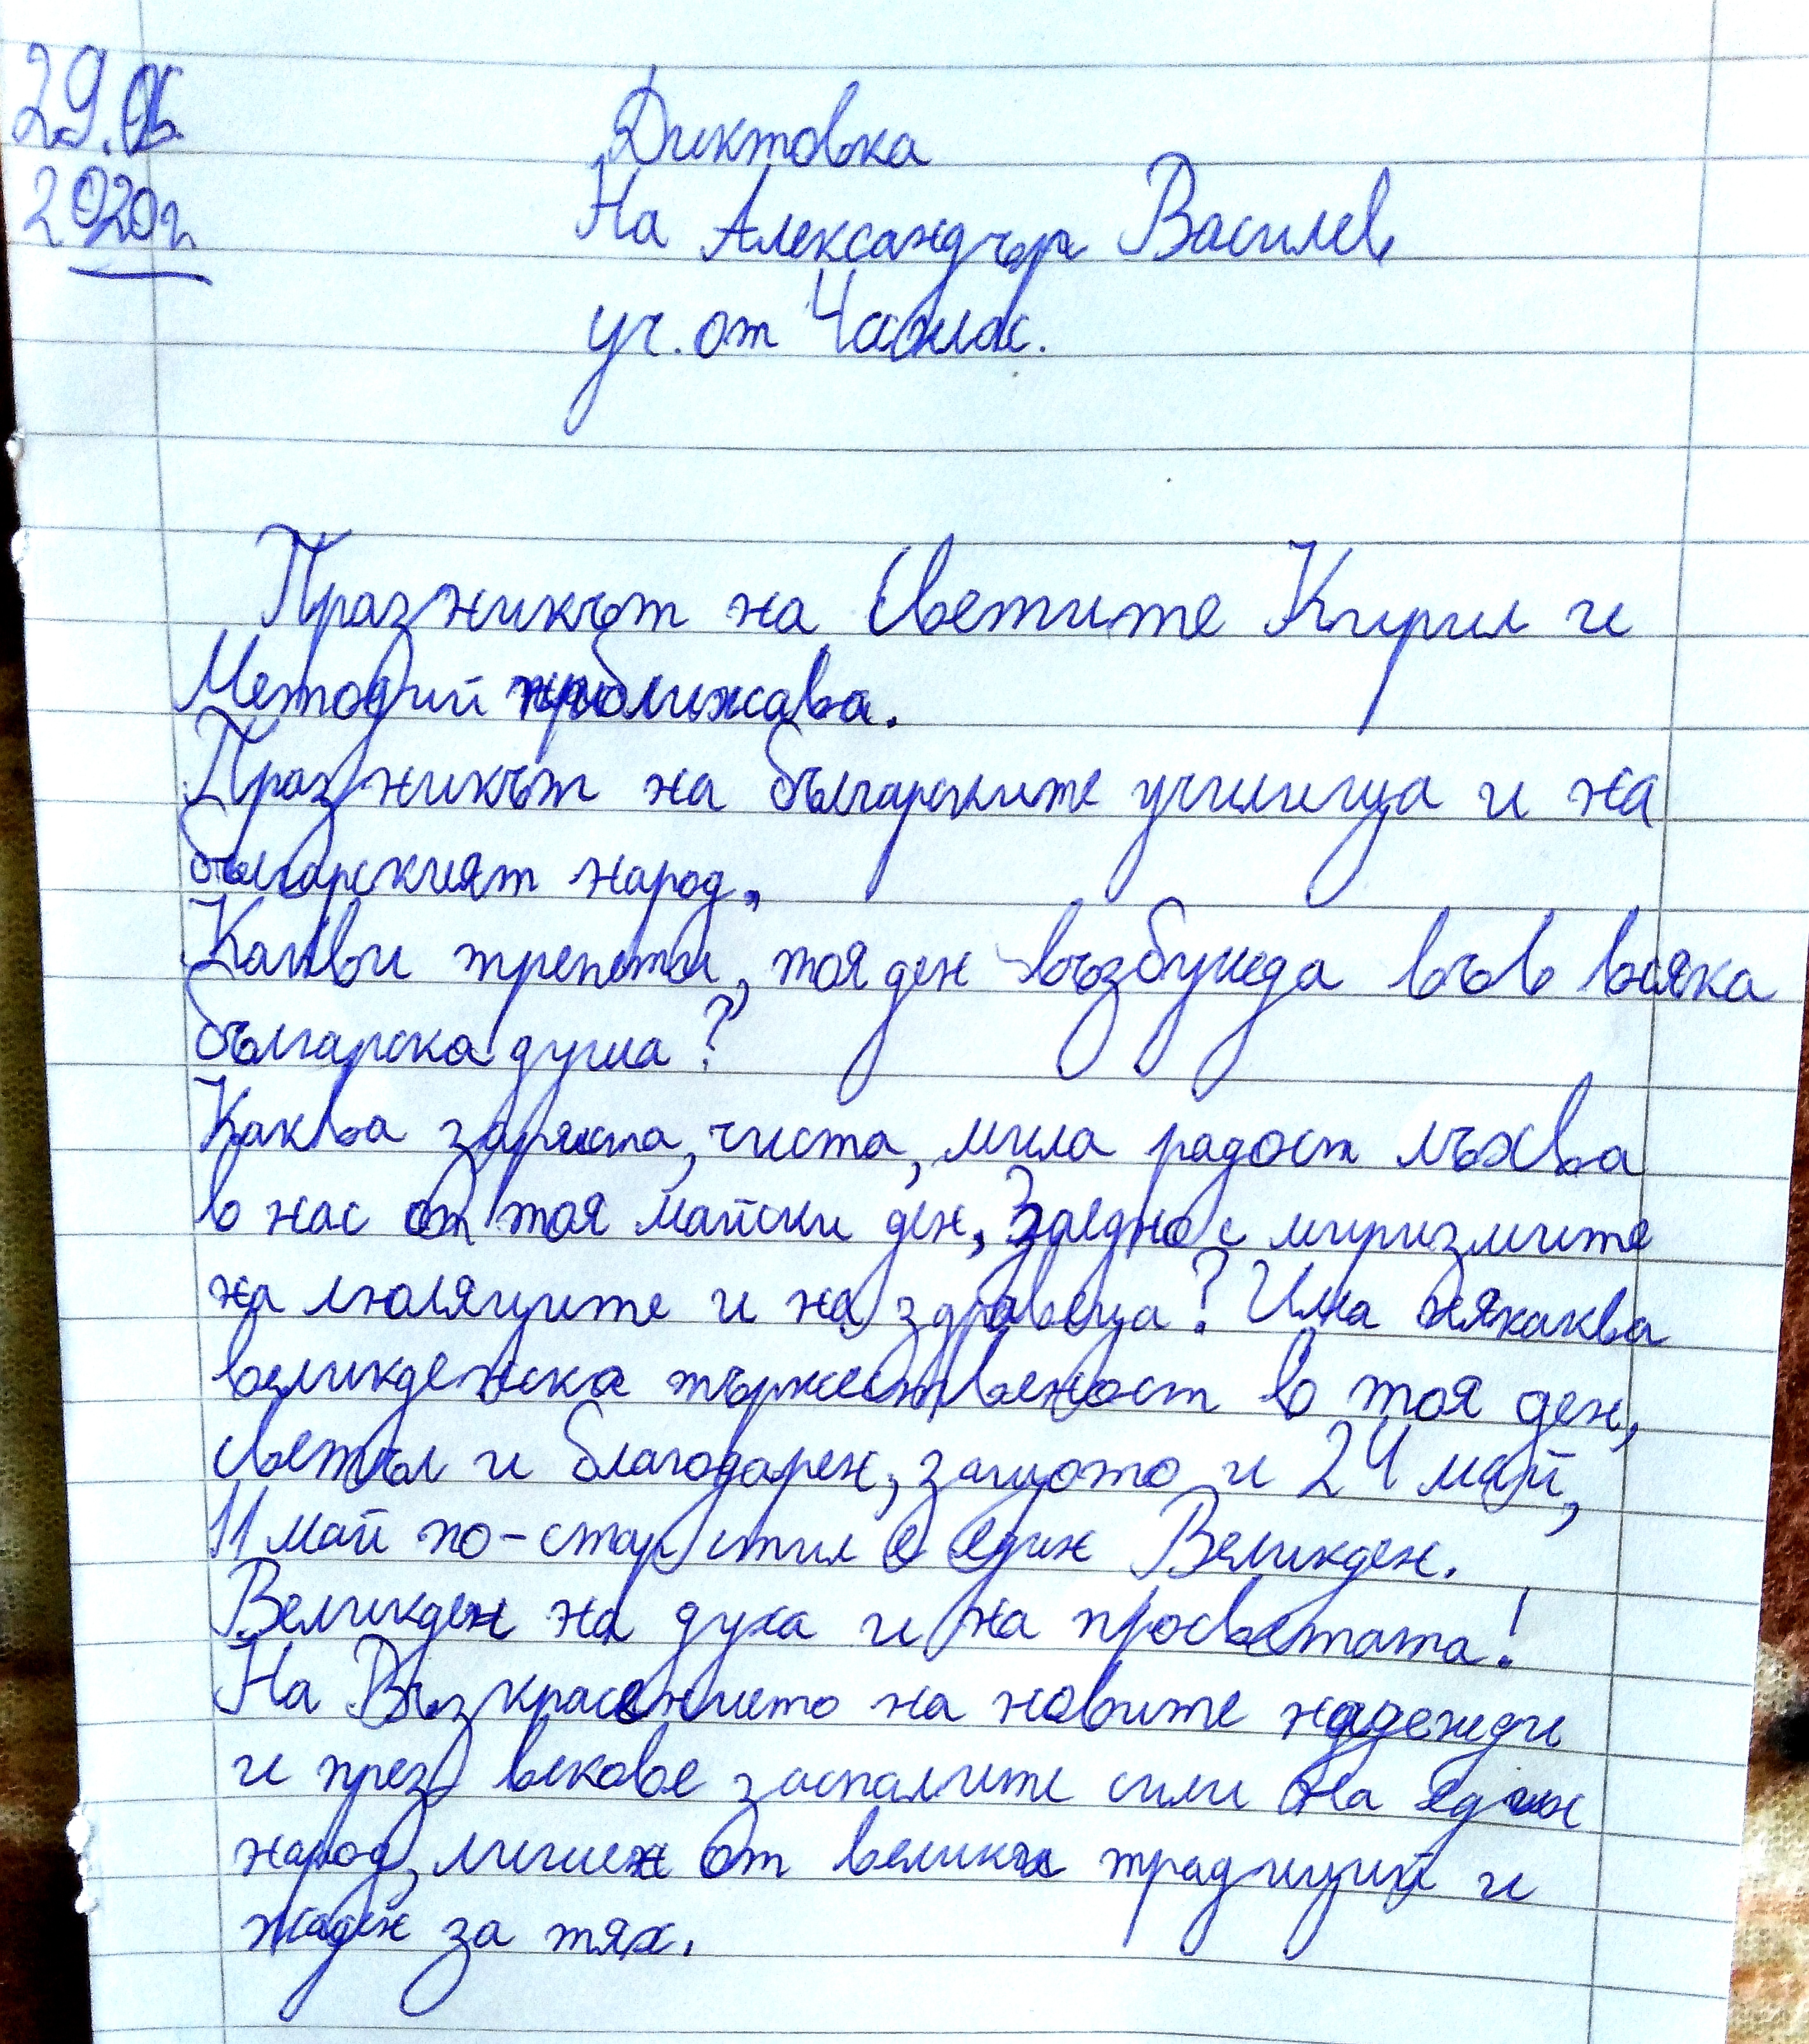 29.06
2020г.
Диктовка
На Александър Василев
уч. от 4 клас.
Празникът на Светите Кирил и
Методий приближава.
Празникът на българските училища и на
българският народ.
Какви трепети, тоя ден възбужда във всяка
българска душа?
Каква заряста, чиста, мила радост лъхва
в нас от тоя майски ден, Заедно с миризмите
на люляците и на здравеца? Има някаква
великденска тържественост в тоя ден,
светъл и благодарен, защото и 24 май,
11 май по-стар стил е един Великден.
Великден на духа и на просветата!
На Възкрасението на новите надежди
и през векове заспалите сили на един
народ, лишен от велики традиций и
жаден за тях.